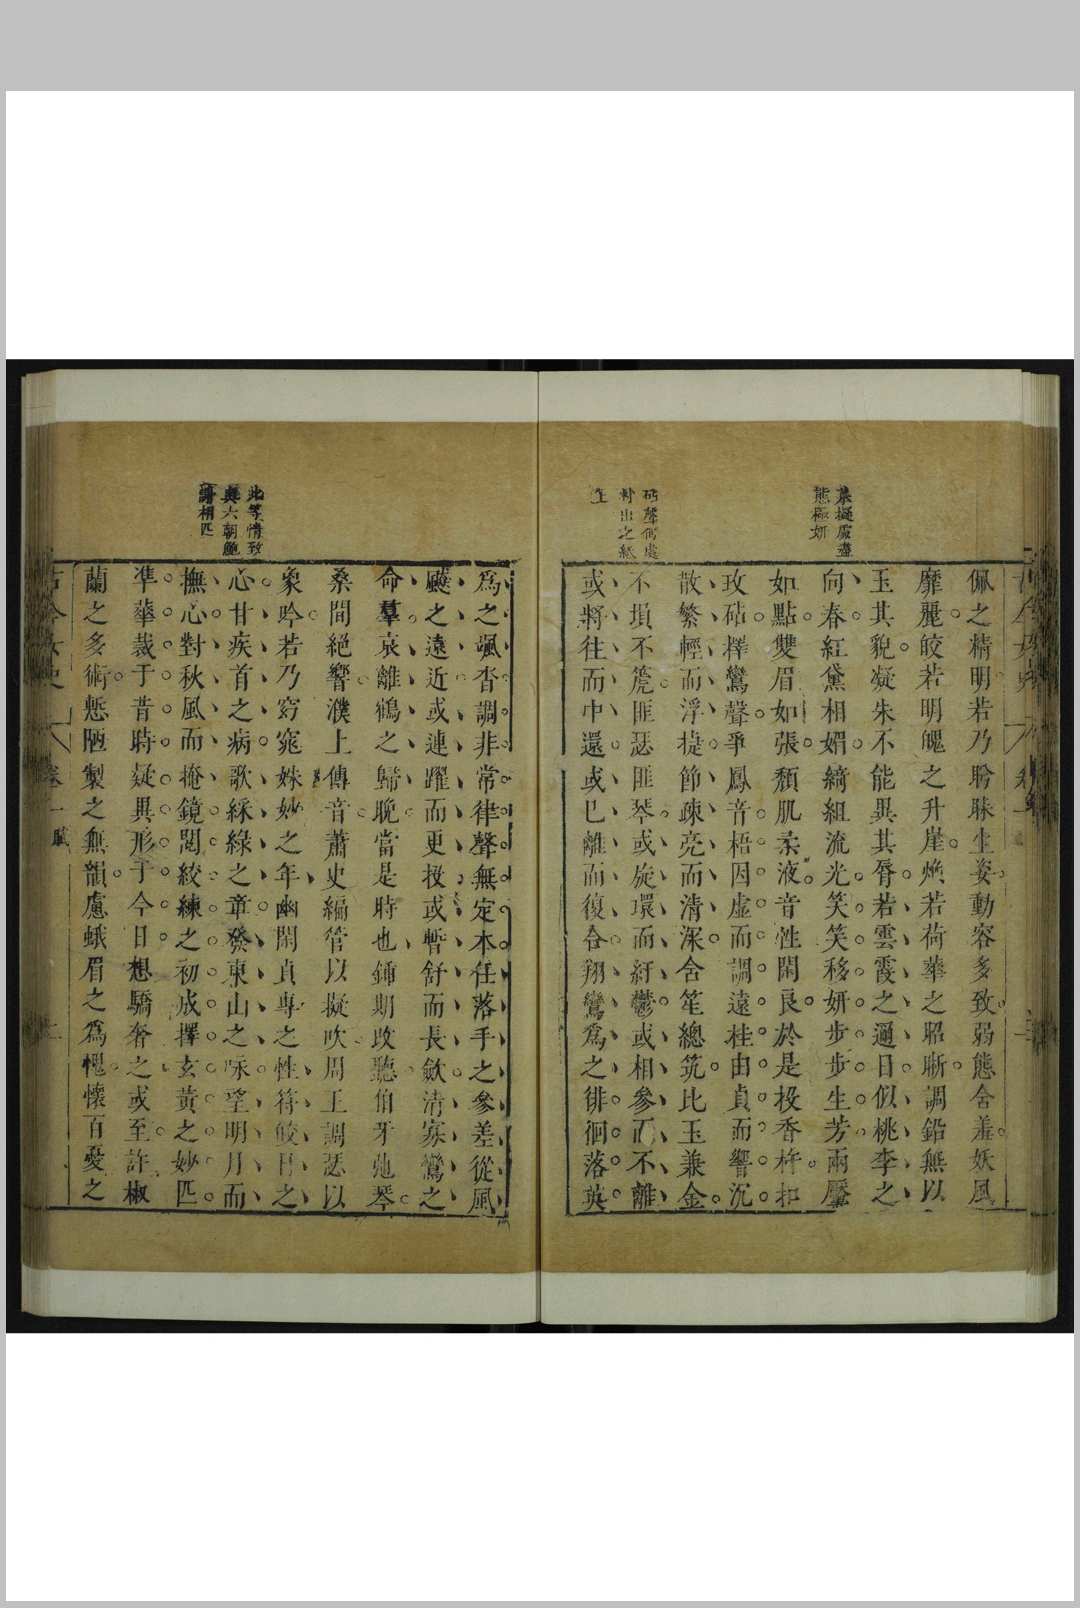 佩之精明若乃盻睞生姿動容多致弱態含羞妖風
靡麗皎若明魄之升崖煥若荷華之昭晰調鉛無以
玉其貌凝朱不能異其脣若雲霞之邇日似桃李之
向春紅黛相媚綺組流光笑笑移妍步步生芳兩靨
如點雙眉如張頹肌柔液音性閑良於是投香杵扣
玫砧擇鸞聲爭鳳音梧因虛而調遠桂由貞而響沉
散繁輕而浮捷節疎亮而清深含笙總筑比玉兼金
不塤不箎匪瑟匪琴或旋環而紆鬱或相參而不離
或將往而中還或已離而復合翔鸞爲之徘徊落英
摹擬處盡
態極妍
砧聲何處
對出之紙
上
爲之颯沓調非常律聲無定本任落手之參差從風
飈之遠近或連躍而更投或暫舒而長歛清寡鸞之
命羣哀離鶴之歸晚當是時也鍾期改聽伯牙弛琴
桑間絕響濮上傳音蕭史編管以擬吹周王調瑟以
象吟若乃窈窕姝妙之年幽閑貞專之性符皎日之
心甘疾首之病歌綵綠之章發東山之咏望明月而
撫心對秋風而掩鏡閱絞練之初成擇玄黃之妙匹
準華裁于昔時疑異形于今日想驕奢之或至許椒
蘭之多術慙陋製之無韻慮蛾眉之爲愧懷百憂之
此等情致
與六朝鮑
謝相匹
古今女史 卷一 賦